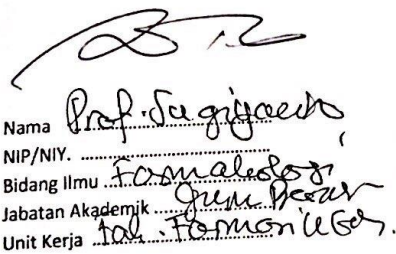 Nama Prof. Sugiyanto
NIP/NIY. ..............................
Bidang Ilmu Farmakologi
Jabatan Akademik Guru Besar
Unit Kerja Fak. Farmasi UGM.